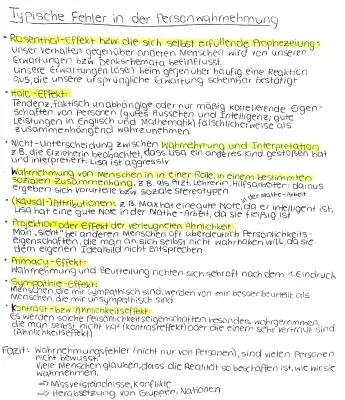 Typische Fehler in der Personwahrnehmung
• Rosenthal-Effekt bzw. die sich selbst erfüllende Prophezeiung:
Unser Verhalten gegenüber anderen Menschen wird von unseren
Erwartungen bzw. Denkschemata beeinflusst.
Unsere Erwartungen lösen beim gegenüber häufig eine Reaktion
aus, die unsere ursprüngliche Erwartung scheinbar bestätigt
• Halo-Effekt:
Tendenz, faktisch unabhängige oder nur mäßig korrelierende Eigen-
schaften von Personen (gutes Aussehen und Intelligenz, gute
Leistungen in Englisch und Mathematik) fälschlicherweise als
zusammenhängend wahrzunehmen.
• Nicht-Unterscheidung zwischen Wahrnehmung und Interpretation
z.B. die Erzieherin beobachtet, dass Lisa ein anderes Kind gestoßen hat
und interpretiert: Lisa ist aggressiv
• Wahrnehmung von Menschen in einer Rolle, in einem bestimmten
sozialen Zusammenhang: z.B. als Arzt, Lehrerin, Hilfsarbeiter: daraus
ergeben sich Vorurteile bzw. soziale Stereotypen
in der Mathe-Arbeit
• (Kausal-)Attributionen: z.B. Max hat eine gute Note, da er intelligent ist,
Lisa hat eine gute Note in der Mathe-Arbeit, da sie fleißig ist
• Projektion oder Effekt der verleugneten Ähnlichkeit:
Man „sieht" bei anderen Menschen oft überdeutlich Persönlichkeits-
eigenschaften, die man an sich selbst nicht wahrhaben will, da sie
dem eigenen Idealbild nicht entsprechen
• Primacy-Effekt:
Wahrnehmung und Beurteilung richten sich sehr oft nach dem 1. Eindruck
• Sympathie-Effekt:
Menschen, die mir sympathisch sind, werden von mir besser beurteilt, als
Menschen, die mir unsympathisch sind
• Kontrast- bzw. Ähnlichkeitseffekt:
Es werden solche Persönlichkeitseigenschaften besonders wahrgenommen,
die man selbst nicht hat (Kontrasteffekt) oder die einem sehr vertraut sind
(Ähnlichkeitseffekt)
Fazit: Wahrnehmungsfehler (nicht nur von Personen), sind vielen Personen
nicht bewusst.
Viele Menschen glauben, dass die Realität so beschaffen ist, wie wir sie
wahrnehmen.
⇒ Missverständnisse, Konflikte
⇒ Herabsetzung von Gruppen, Nationen